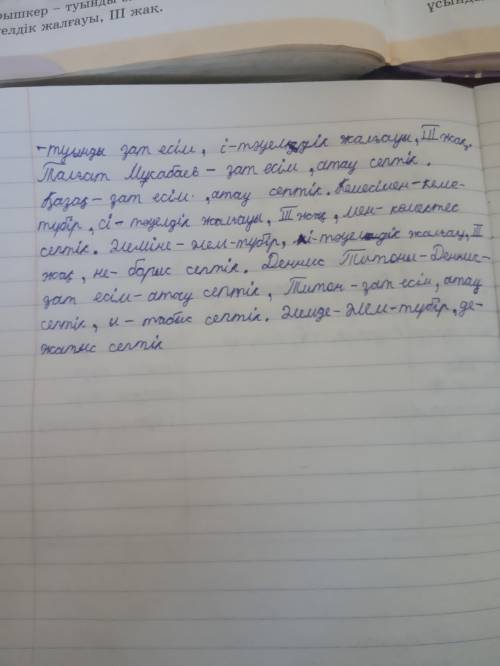 рышкер – туынды
елдік жалғауы, III жақ.
ұсын
-туынды зат есім, і-тәуелдік жалғауы, III жақ.
Талғат Мұсабаев - зат есім, атау септік.
Қазақ - зат есім, атау септік. Кемесімен - кеме-
түбір, сі - тәуелдік жалғауы, III жақ, мен - көмектес
септік. Әлеміне - әлем - түбір, і - тәуелдік жалғау, II
жақ, не - барыс септік. Деннис Титони - Деннис-
зат есім - атау септік, Титон - зат есім, атау
септік, и - табыс септік. Әлемде - әлем - түбір, де-
жатыс септік